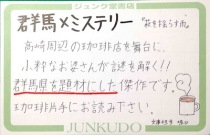 ジュンク堂書店
群馬×ミステリー
"萩を揺らす雨"
高崎周辺の珈琲店を舞台に、
小粋なお婆さんが謎を解く!!
群馬県を題材にした傑作です。
珈琲片手にお読み下さい。
文庫担当
JUNKUDO